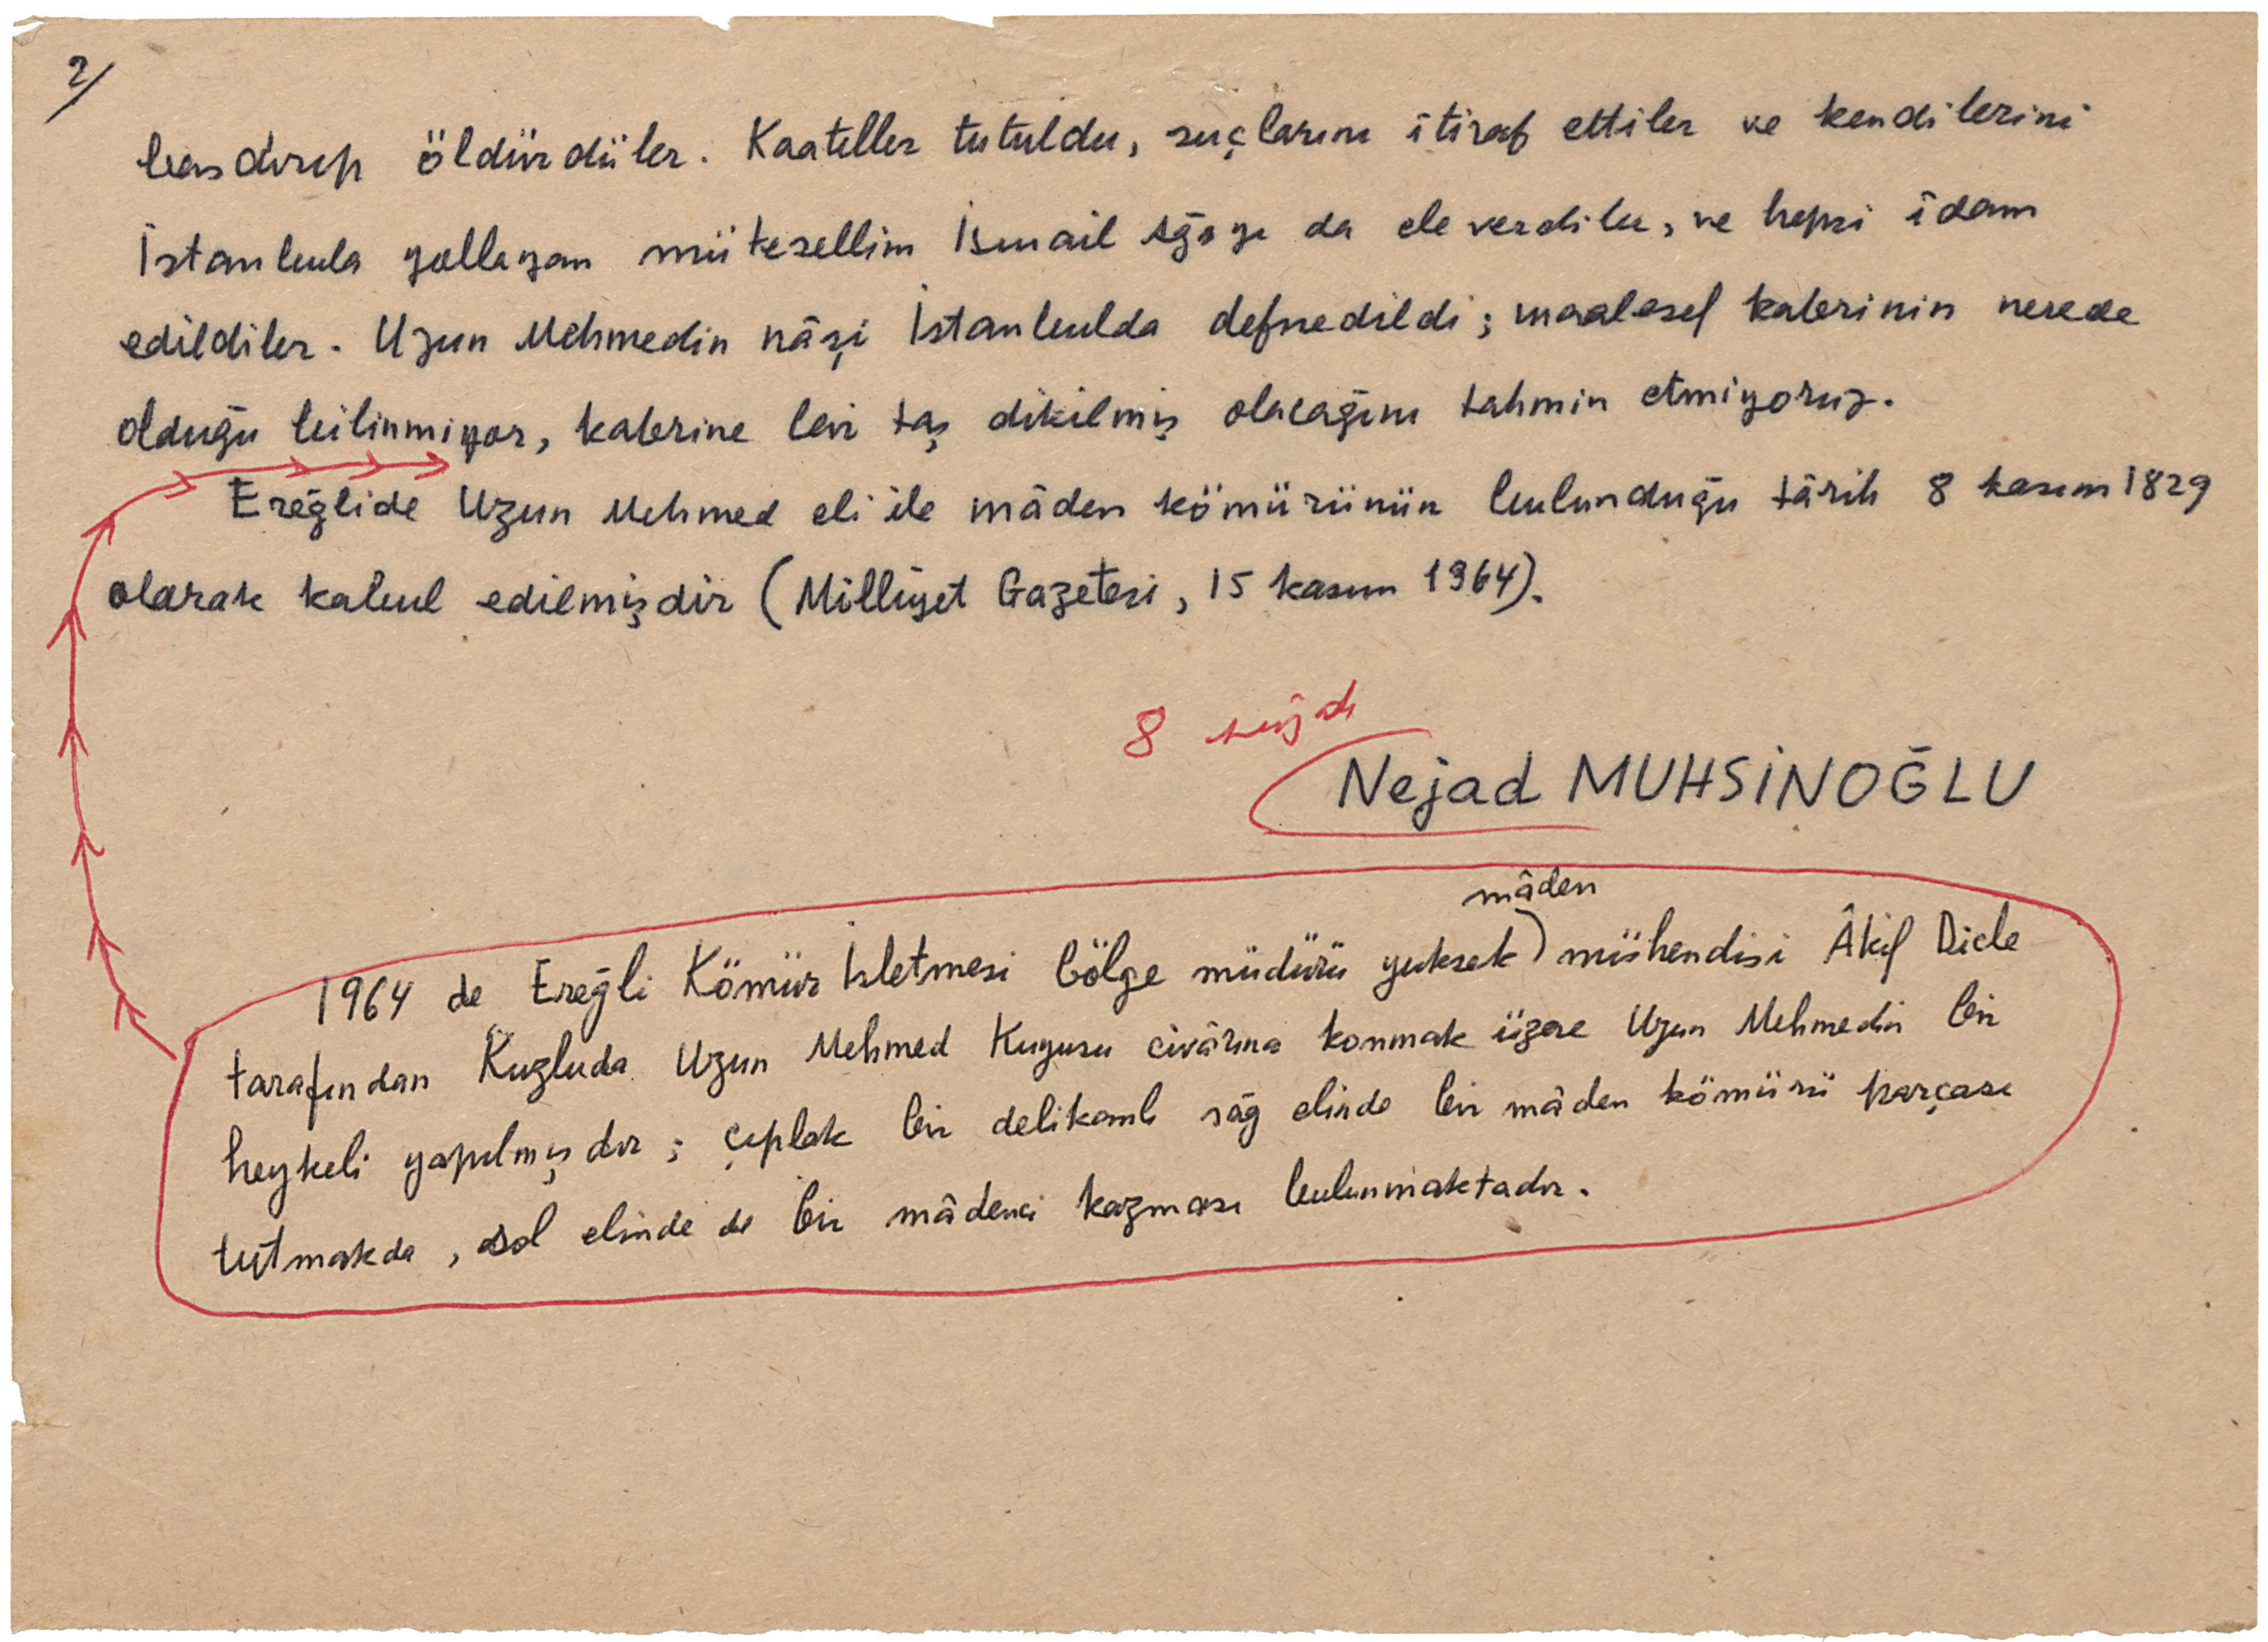 2/
basdırıp öldürdüler. Kaatiller tutuldu, suçlarını îtiraf ettiler ve kendilerini
İstanbula yollayan mütesellim İsmail Ağayı da ele verdiler, ve hepsi îdam
edildiler. Uzun Mehmedin nâşi İstanbulda defnedildi; maalesef kabrinin nerede
olduğu bilinmiyor, kabrine bir taş dikilmiş olacağını tahmin etmiyoruz.
Ereğlide Uzun Mehmed eli ile mâden kömürünün bulunduğu târih 8 kasım 1829
olarak kabul edilmişdir (Milliyet Gazetesi, 15 kasım 1964).
8
Nejad MUHSİNOĞLU
mâden
1964 de Ereğli Kömür İsletmesi bölge müdürü yuksek) mühendisi Âkif Dicle
tarafından Kozluda Uzun Mehmed Kuyusu civârına konmak üzere Uzun Mehmedin bir
heykeli yapılmışdır; çıplak bir delikanlı sağ elinde bir mâden kömürü parçası
tutmakda, sol elinde de bir mâdenci kazması bulunmaktadır.